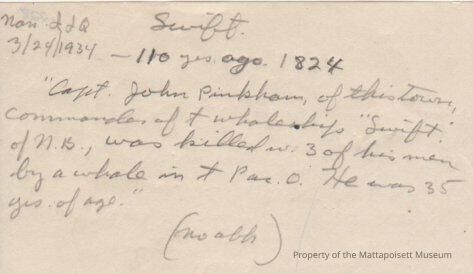 Swift.
Nan. I & Q
3/24/1934 – 110 yrs. ago. 1824
"Capt. John Pinkham, of this town,
commander of t whaleship "Swift"
of N.B., was killed w. 3 of his men
by a whale in t Pac. O. He was 35
yrs. of age."
(no abh)
Property of the Mattapoisett Museum